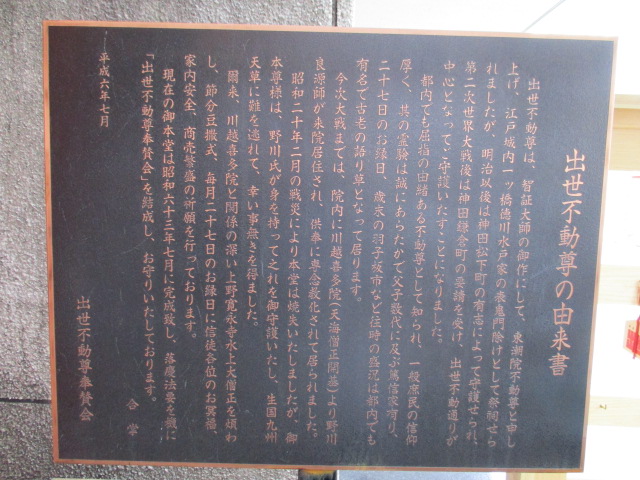 出世不動尊の由来書
出世不動尊は、智証大師の御作にして、東潮院不動尊と申し
上げ、江戸城内一ッ橋徳川水戸家の表鬼門除けとして祭祠せら
れましたが、明治以後は神田松下町の有志によって守護せられ、
第二次世界大戦後は神田鎌倉町の要請を受け、出世不動通りが
中心となってご守護いたすことになりました。
都内でも屈指の由緒ある不動尊として知られ、一般庶民の信仰
厚く、其の霊験は誠にあらたかで父子数代に及ぶ篤信家有り、
二十七日のお縁日、歳末の羽子板市など往時の盛況は都内でも
有名で古老の語り草となって居ります。
今次大戦までは、院内に川越喜多院(天海僧正開基)より野川
良源師が来院居住され、供奉に専念教化されて居られました。
昭和二十年二月の戦災により本堂は焼失いたしましたが、御
本尊様は、野川氏が身を持って之れを御守護いたし、生国九州
天草に難を逃れて、幸い事無きを得ました。
爾来、川越喜多院と関係の深い上野寛永寺水上大僧正を煩わ
し、節分豆撒式、毎月二十七日のお縁日に信徒各位のお冥福、
家内安全、商売繁盛の祈願を行っております。
現在の御本堂は昭和六十三年七月に完成致し、落慶法要を機に
「出世不動尊奉賛会」を結成し、お守りいたしております。
合掌
出世不動尊奉賛会
平成六年七月